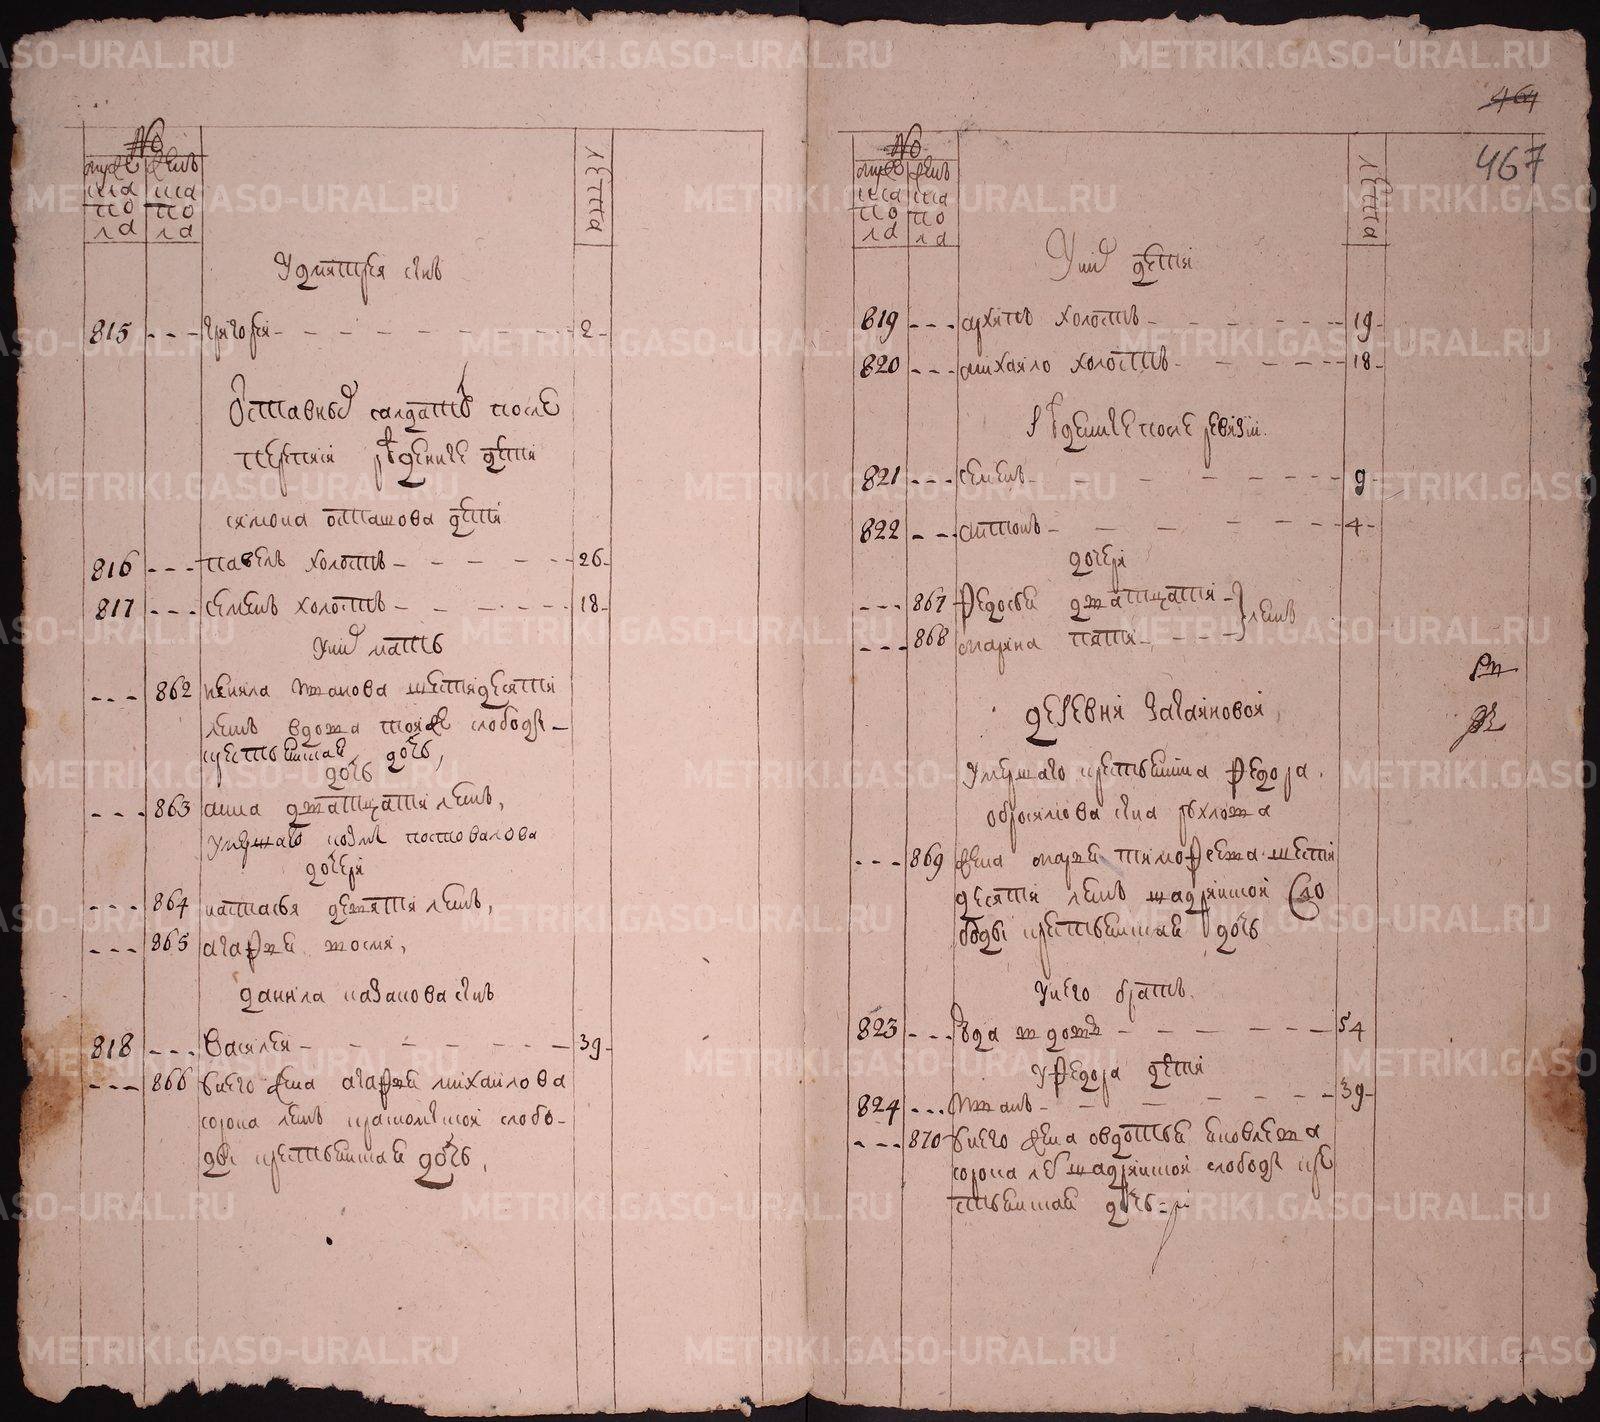 №
муже
ска
по
ла
женъ
ска
по
ла
лета
У дмитрея сынъ
815 григореи 2
Оставныхъ салдатъ после
переписи рожденные дети
симона осташова дети
816 павелъ холостъ 26
817 семенъ холостъ 18
У них мать
862 иванова шестидесяти
летъ вдова тояже слободы
крестьянская дочь,
дочь
863 анна дватцати летъ,
умершаго козмы постовалова
дочери
864 настасья девяти летъ,
865 агафья восми,
данила казакова сынъ
818 Василеи 39
866 у него жена агафья михаилова
сорока летъ слобо
ды крестьянская дочь,
464
467
№
муже
ска
по
ла
женъ
ска
по
ла
лета
У них дети
819 архипъ холостъ 19
820 михаило холостъ 18
рожденные после ревизии.
821 семенъ 9
822 антонъ 4
дочери
867 Федосья дватцати
868 марина пяти летъ
деревни Загаиновои
Умершаго крестьянина Федора
обросимова сына
869 жена марья тимофеева шести
десяти летъ шадринской сло
боды крестьянская дочь
У него братъ
823 вдовъ 54
У Федора дети
824 иванъ 39
870 у него жена овдотья яковлева
сорока летъ шадринской слободы кре
стьянская дочь